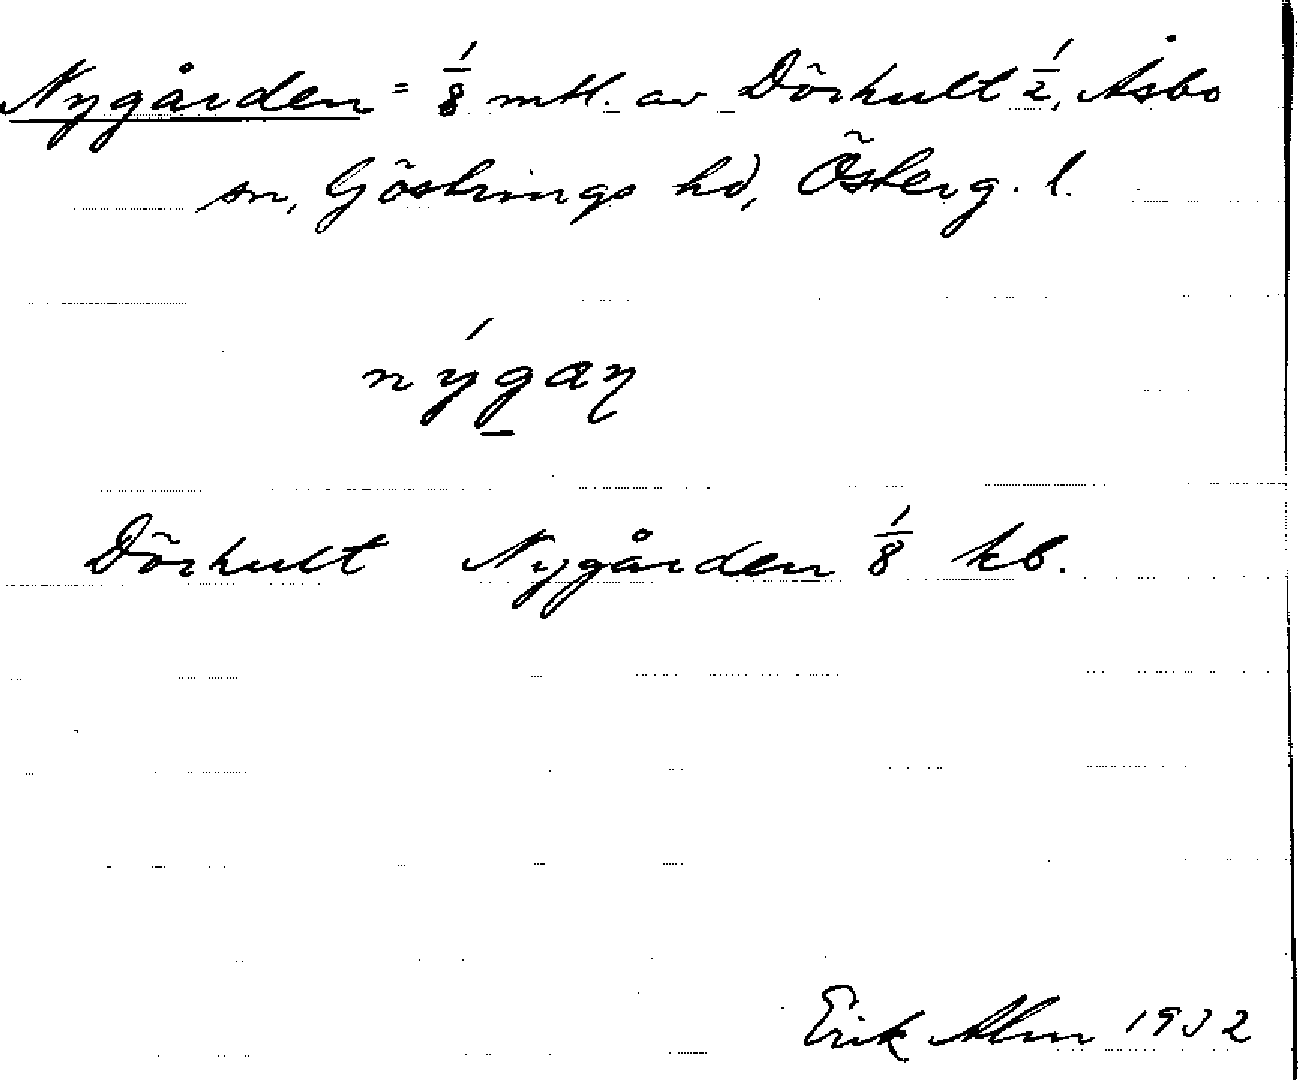 Nygården = 1/8 mtl. av Dörhult 1/2, Åsbo
sn, Göstrings hd, Österg. l.
nýgaɳ
Dörhult Nygården 1/8 kb.
Erik Alm 1932